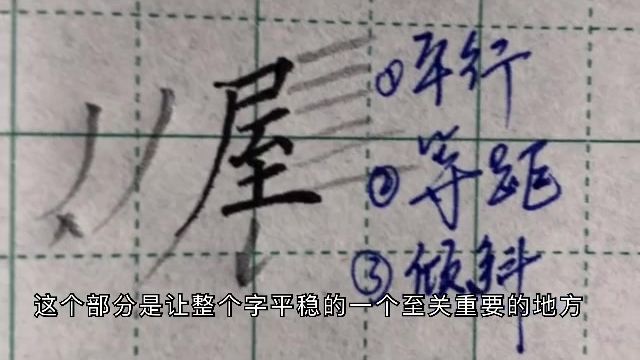 屋
①平行
②等距
③倾斜
这个部分是让整个字平稳的一个至关重要的地方